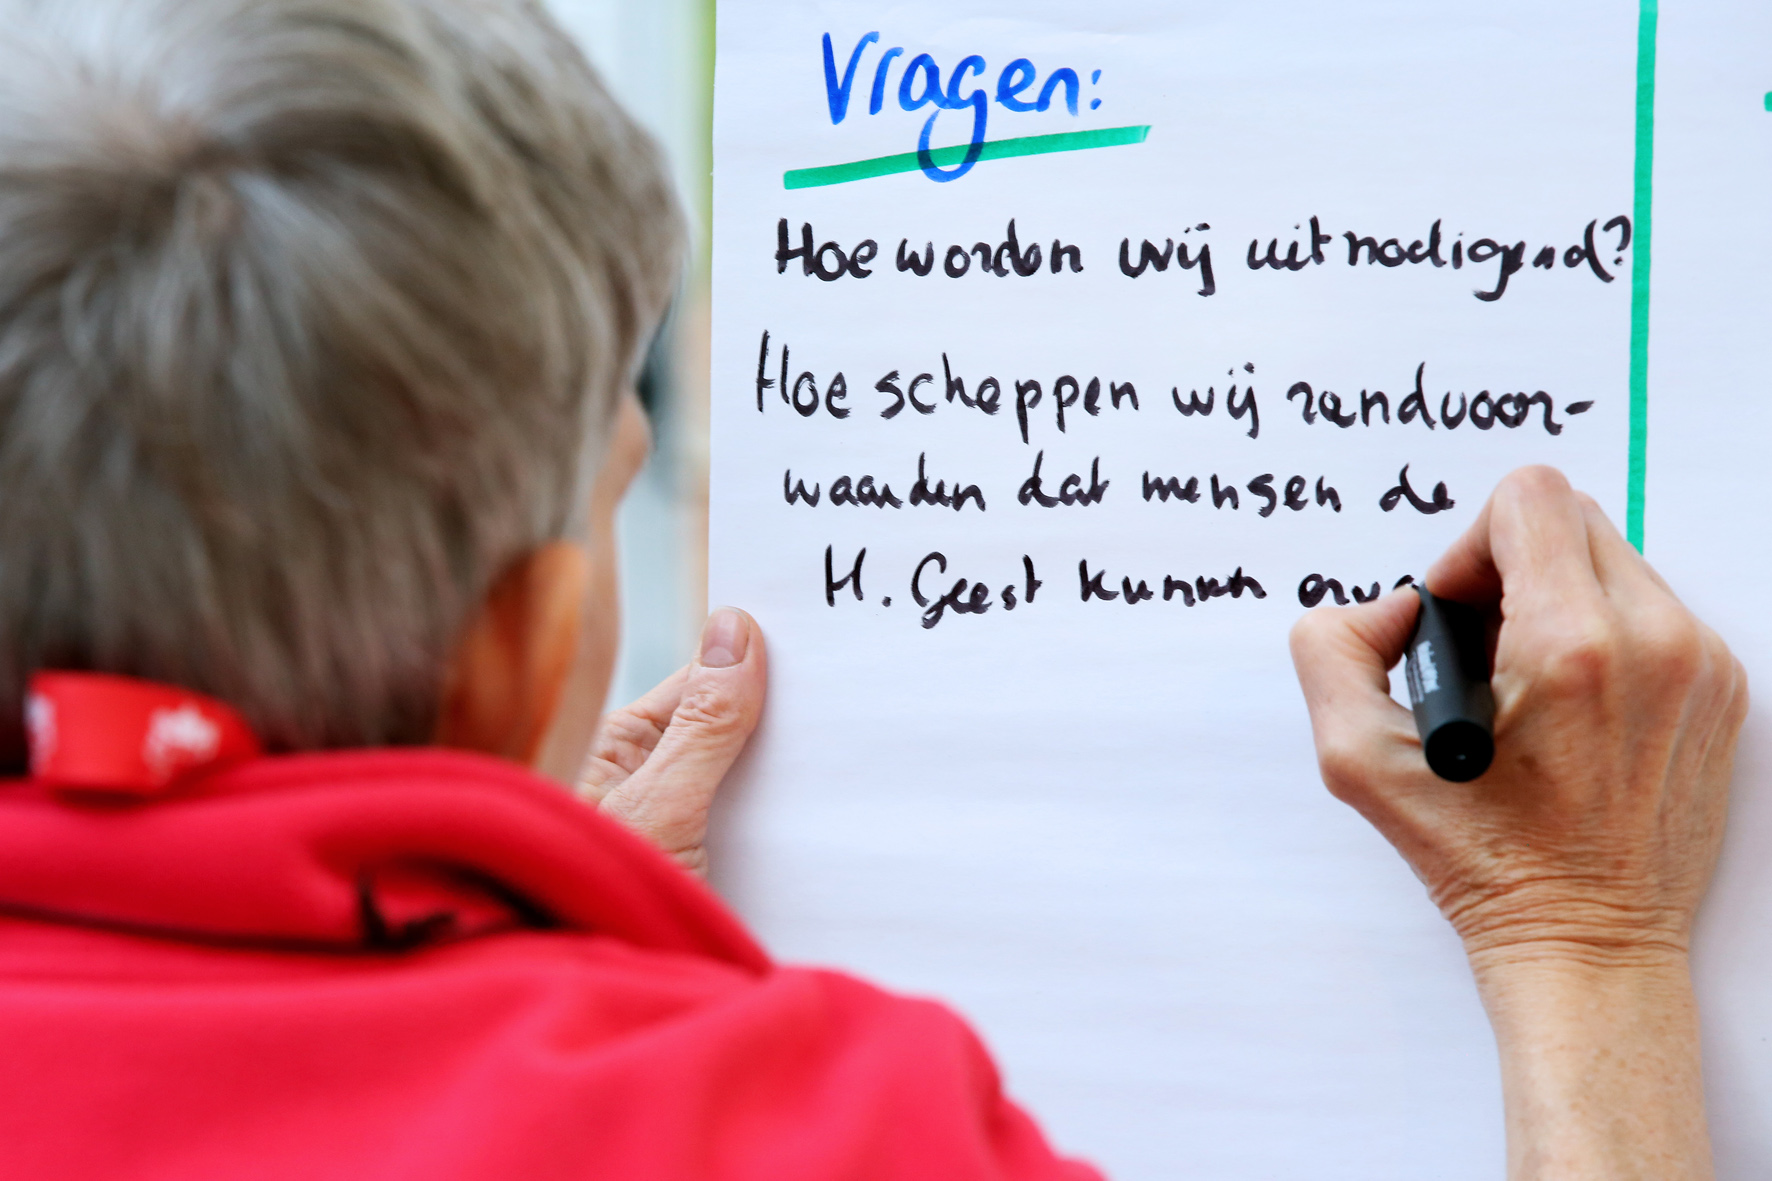 Vragen:
Hoe worden wij uitnodigend?
Hoe scheppen wij randvoor-
waarden dat mensen de
H. Geest kunnen erva